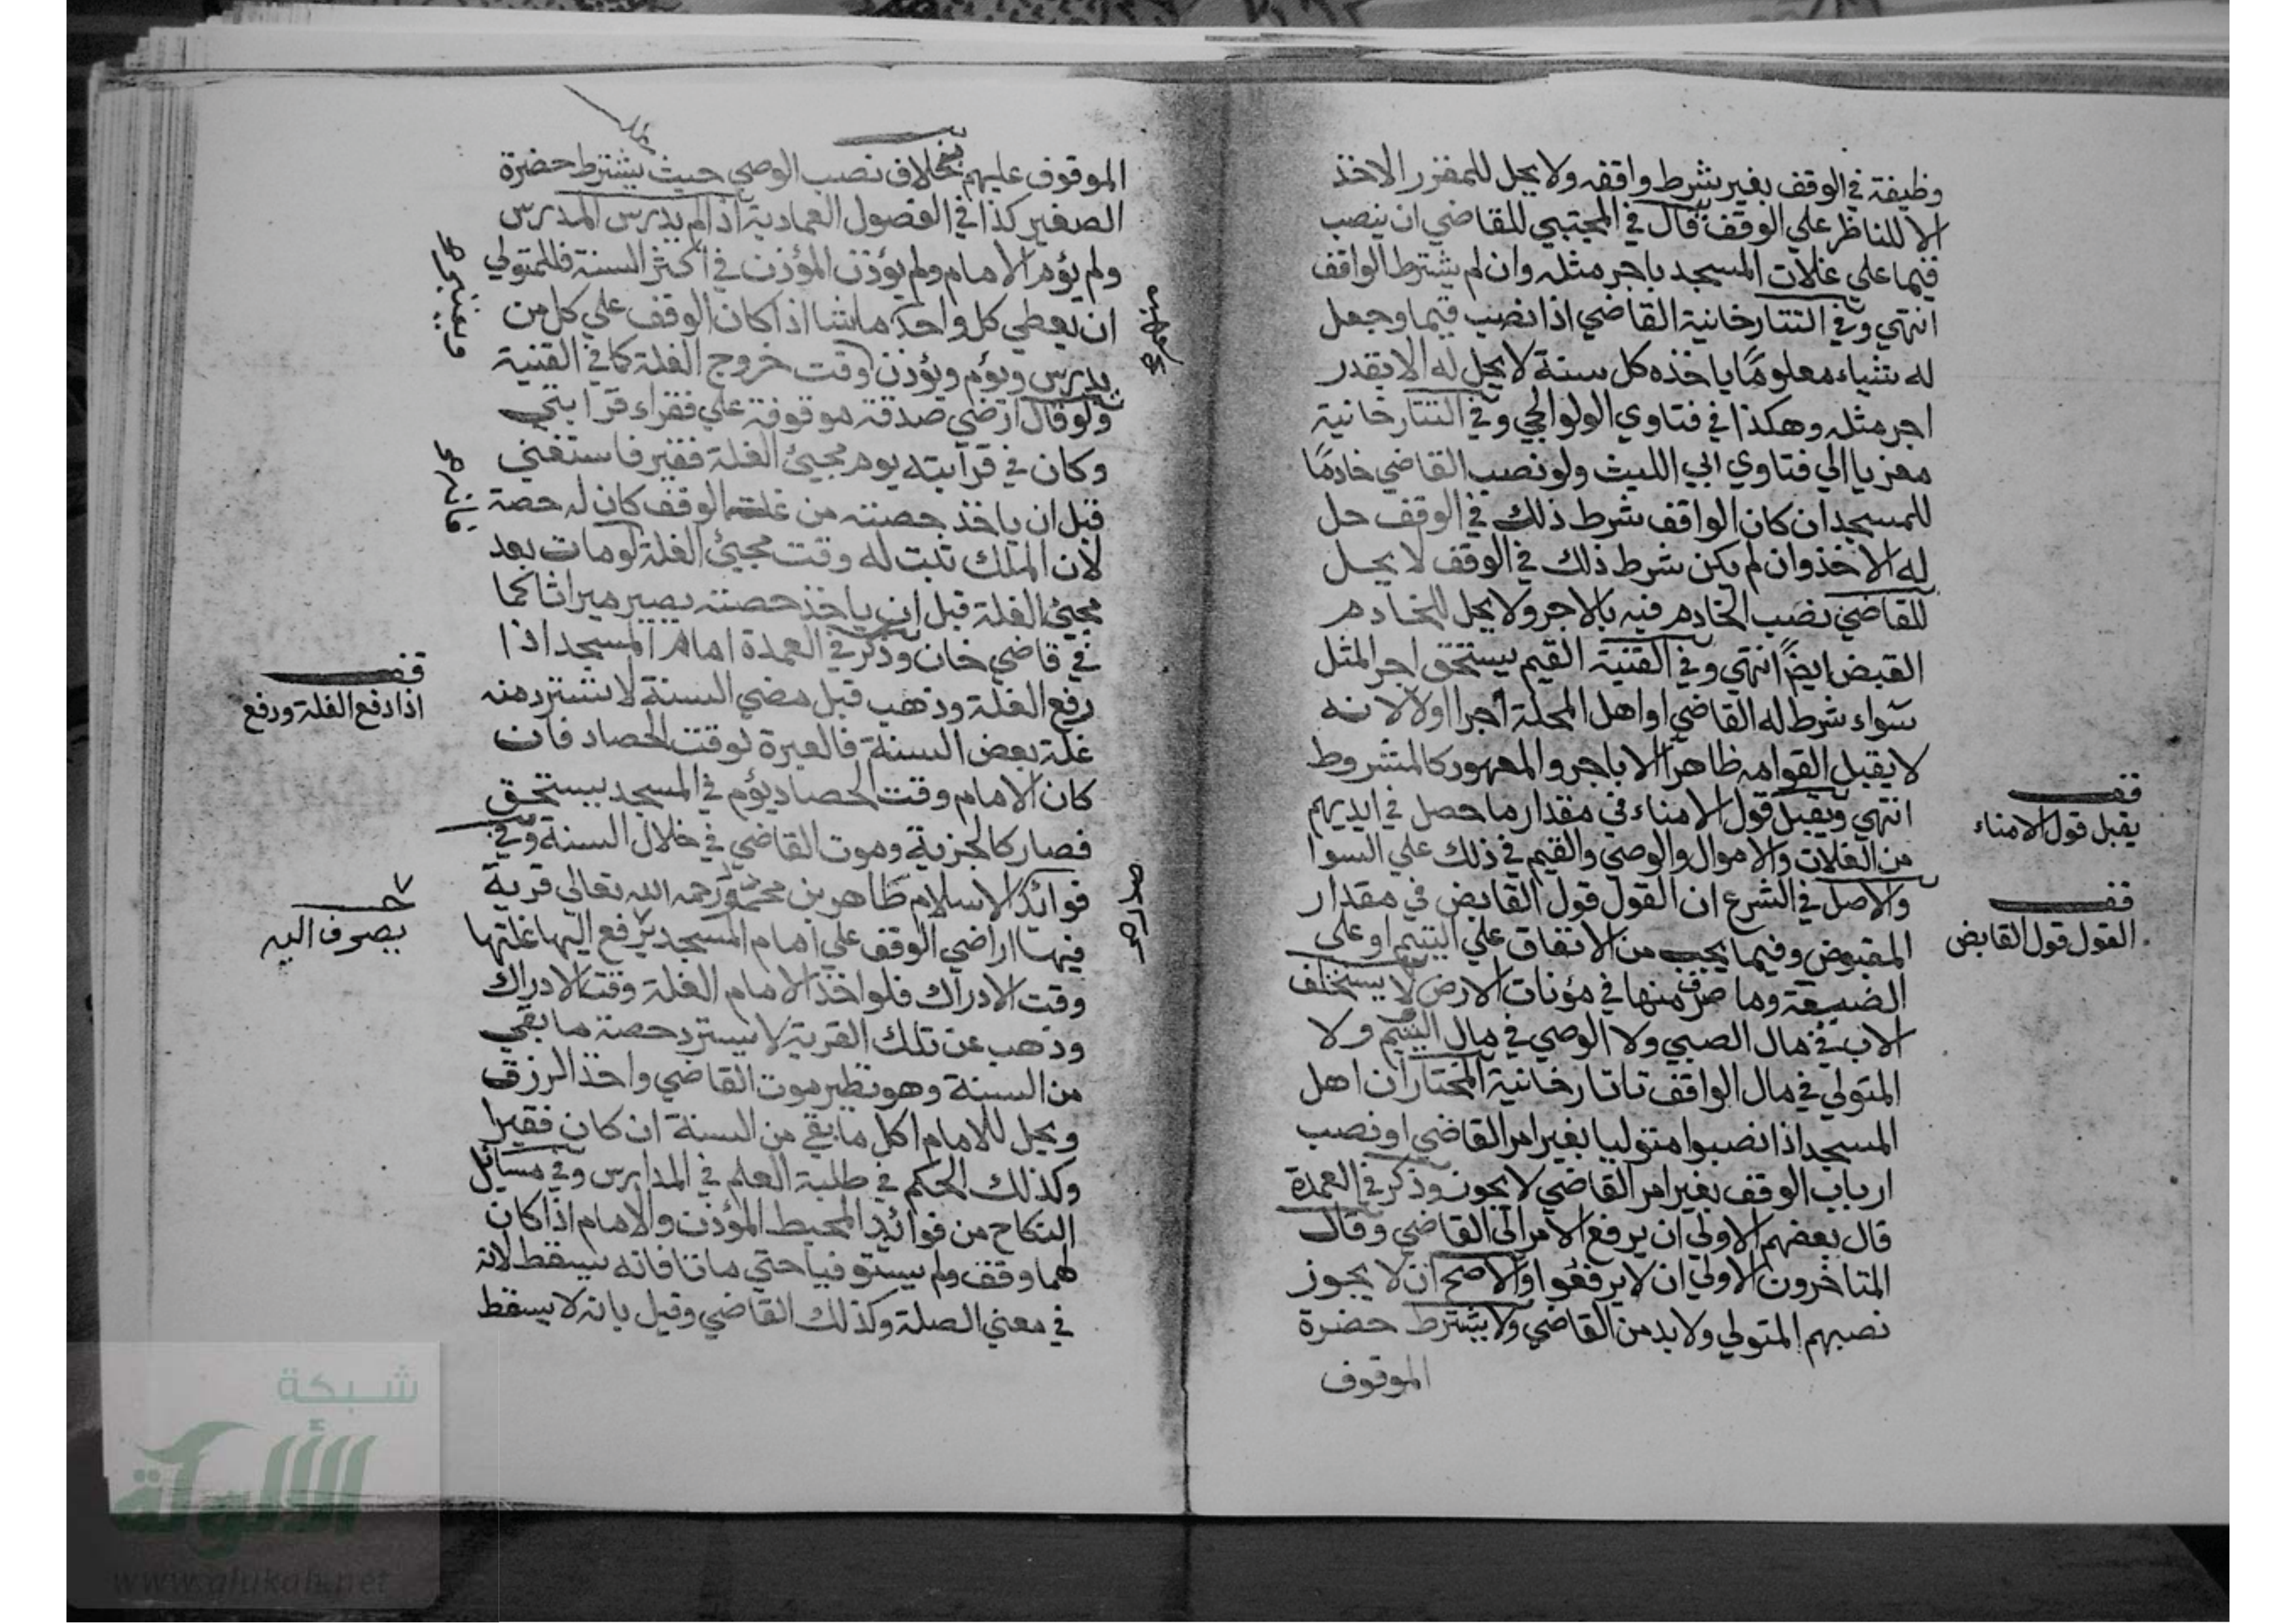 وظيفة في الوقف بغير شرط واقفه ولا يحل للمقرر الاخذ
الا للناظر علي الوقف قال في المجتبي للقاضي ان ينصب
قيما علي غلات المسجد باجر مثله وان لم يشترط الواقف
انتهي وفي التتارخانية القاضي اذا نصب قيما وجعل
له شياء معلومًا ياخذه كل سنة لا يحل له الا بقدر
اجر مثله وهكذا في فتاوي الولوالجي وفي التتارخانية
معزيا الي فتاوي ابي الليث ولو نصب القاضي خادمًا
للمسجد ان كان الواقف شرط ذلك في الوقف حل
له الاخذ وان لم يكن شرط ذلك في الوقف لا يحل
للقاضي نصب الخادم فيه بالاجر ولا يحل للخادم
القبض ايضًا انتهي وفي القنية القيم يستحق اجر المثل
سواء شرط له القاضي او اهل المحلة اجرا او لا لانه
لا يقبل القوامه ظاهرا الا باجر والمعهود كالمشروط
انتهي ويقبل قول الامناء في مقدار ما حصل في ايديهم
من الغلات والاموال والوصي والقيم في ذلك علي السوا
والاصل في الشرع ان القول قول القابض في مقدار
المقبوض وفيما يجب من الانفاق علي اليتيم او علي
الضيعة وما صرف منها في مؤنات الارض لا يستحلف
الاب في مال الصبي ولا الوصي في مال اليتيم ولا
المتولي في مال الواقف تاتارخانية المختار ان اهل
المسجد اذا نصبوا متوليا بغير امر القاضي او نصب
ارباب الوقف بغير امر القاضي لا يجوز وذكر في العمدة
قال بعضهم الاولي ان يرفع الامر الي القاضي وقال
المتاخرون الاولي ان لا يرفعوا والاصح ان لا يجوز
نصبهم المتولي ولا بد من القاضي ولا يشترط حضرة
الموقوف
قف
يقبل قول الامناء
قف
القول قول القابض
الموقوف عليهم بخلاف نصب الوصي حيث يشترط حضرة
الصغير كذا في الفصول العمادية اذا لم يدرس المدرس
ولم يؤم الامام ولم يؤذن المؤذن في اكثر السنة فللمتولي
ان يعطي كل واحد ما شا اذا كان الوقف علي كل من
يدرس ويؤم ويؤذن وقت خروج الغلة كما في القنية
ولو قال ارضي صدقة موقوفة علي فقراء قرابتي
وكان في قرابته يوم مجيئ الغلة فقير فاستغني
قبل ان ياخذ حصته من غلة الوقف كان له حصة
لان الملك ثبت له وقت مجيئ الغلة لو مات بعد
مجيئ الغلة قبل ان ياخذ حصته يصير ميراثا كما
في قاضي خان وذكر في العمدة امام المسجد اذا
رفع الغلة وذهب قبل مضي السنة لا تسترد منه
غلة بعض السنة فالعبرة لوقت الحصاد فان
كان الامام وقت الحصاد يؤم في المسجد يستحق
فصار كالجزية وموت القاضي في خلال السنة وفي
فوائد الاسلام طاهر بن محمود رحمه الله تعالي قرية
فيها اراضي الوقف علي امام المسجد يرفع اليها غلتها
وقت الادراك فلو اخذ الامام الغلة وقت الادراك
وذهب عن تلك القرية لا يسترد حصة ما بقي
من السنة وهو نظير موت القاضي واخذ الرزق
ويحل للامام اكل ما بقي من السنة ان كان فقيرا
وكذلك الحكم في طلبة العلم في المدارس وفي مسائل
النكاح من فوائد المحيط المؤذن والامام اذا كان
لهما وقف ولم يستوفيا حتي ماتا فانه يسقط لانه
في معني الصلة وكذلك القاضي وقيل بانه لا يسقط
قف
اذا دفع الغلة ورفع
يصرف اليه
شبكة
الألوكة
www.alukah.net